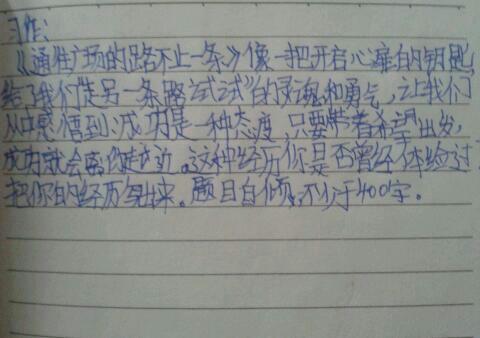 习作:
《通往广场的路不止一条》像一把开启心扉的钥匙,
给了我们"走另一条路试试"的灵魂和勇气,让我们
从中感悟到:成功是一种态度,只要带着希望出发,
成功就会离你走近。这种经历你是否曾经体验过
把你的经历写出来。题目自倾,不少于400字。